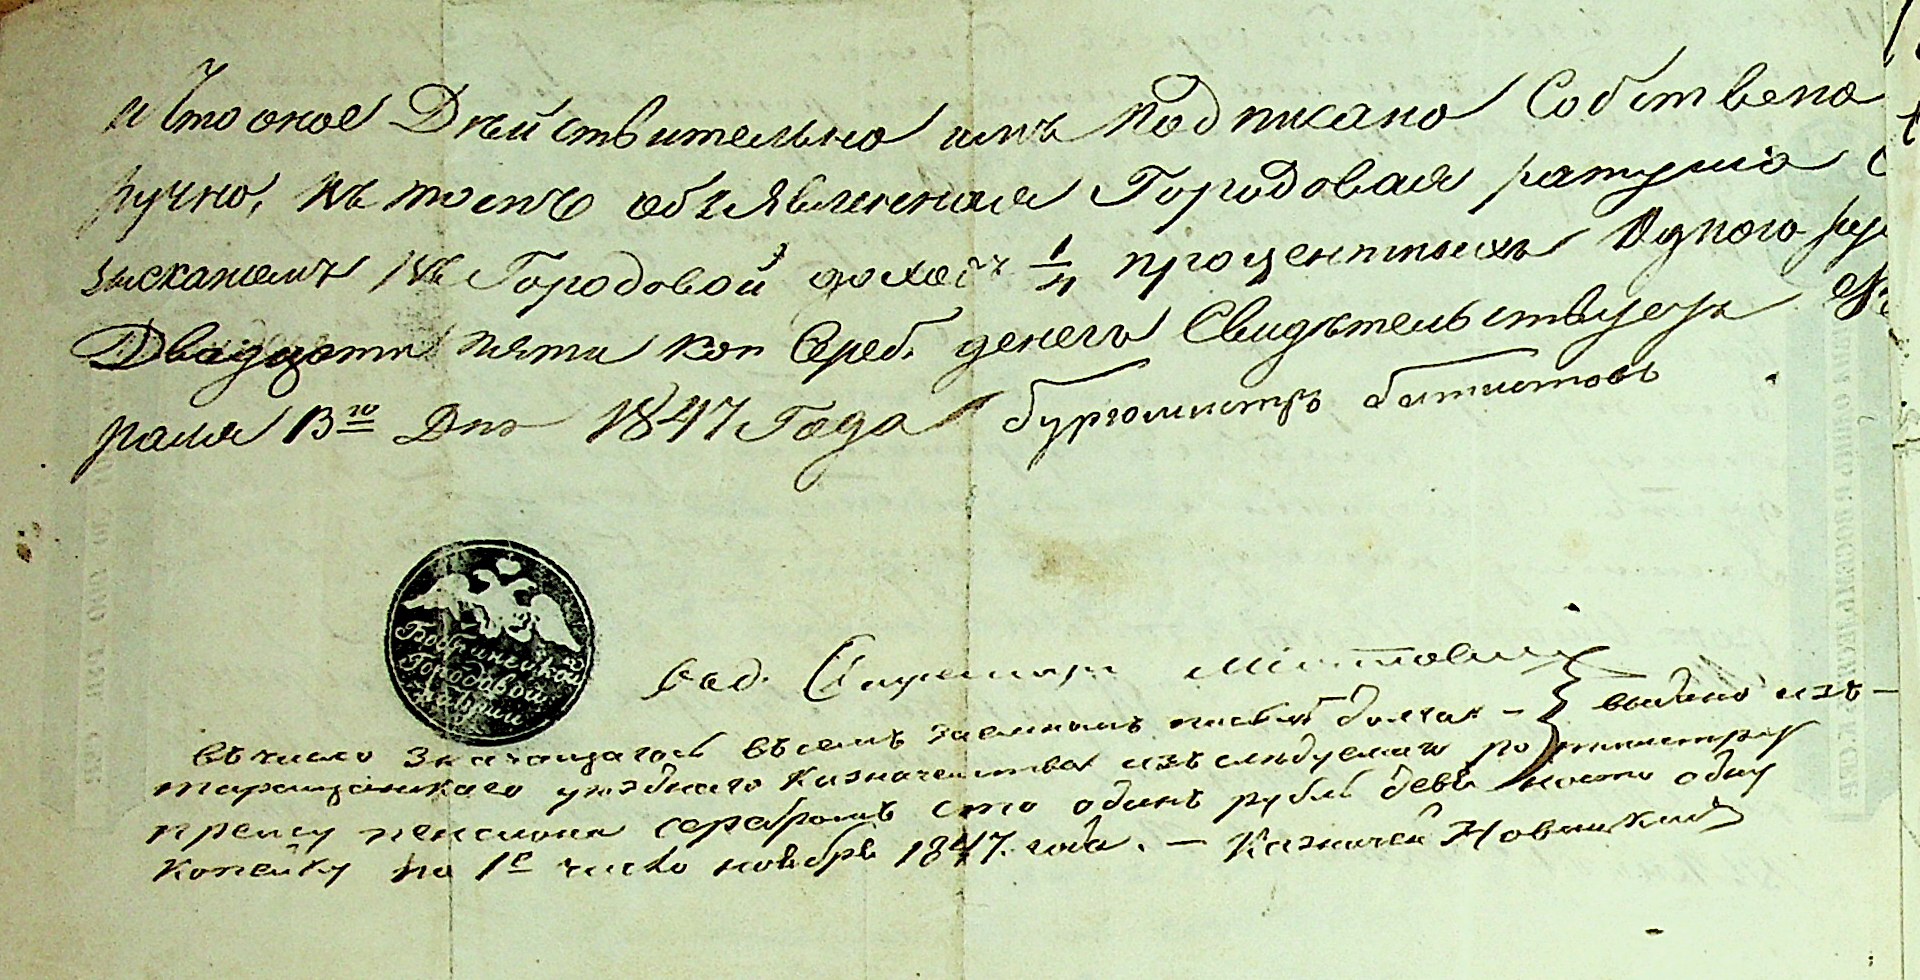 и что оное Действительно имъ подписано Собствено
ручно, въ томъ объявленная Городовая ратуша с
зысканіемъ въ Городовой доходъ 1/4 процентныхъ Одного ру
Двадцати пяти коп Сереб. денегъ Свидѣтельствуетъ
раля 13го Дня 1847 Года бургомистръ
Бобринецкой
Городовой
Ратуши
Секретарь
въ число значущагося въ семъ заемномъ писмѣ долга — выдано изъ —
таращанскаго уѣзднаго Казначейства изъ слѣдуемаго по
пенсіона серебромъ сто одинъ рубль девяносто одну
копейку по 1е число ноября 1847 года. — Казначей Новицкий